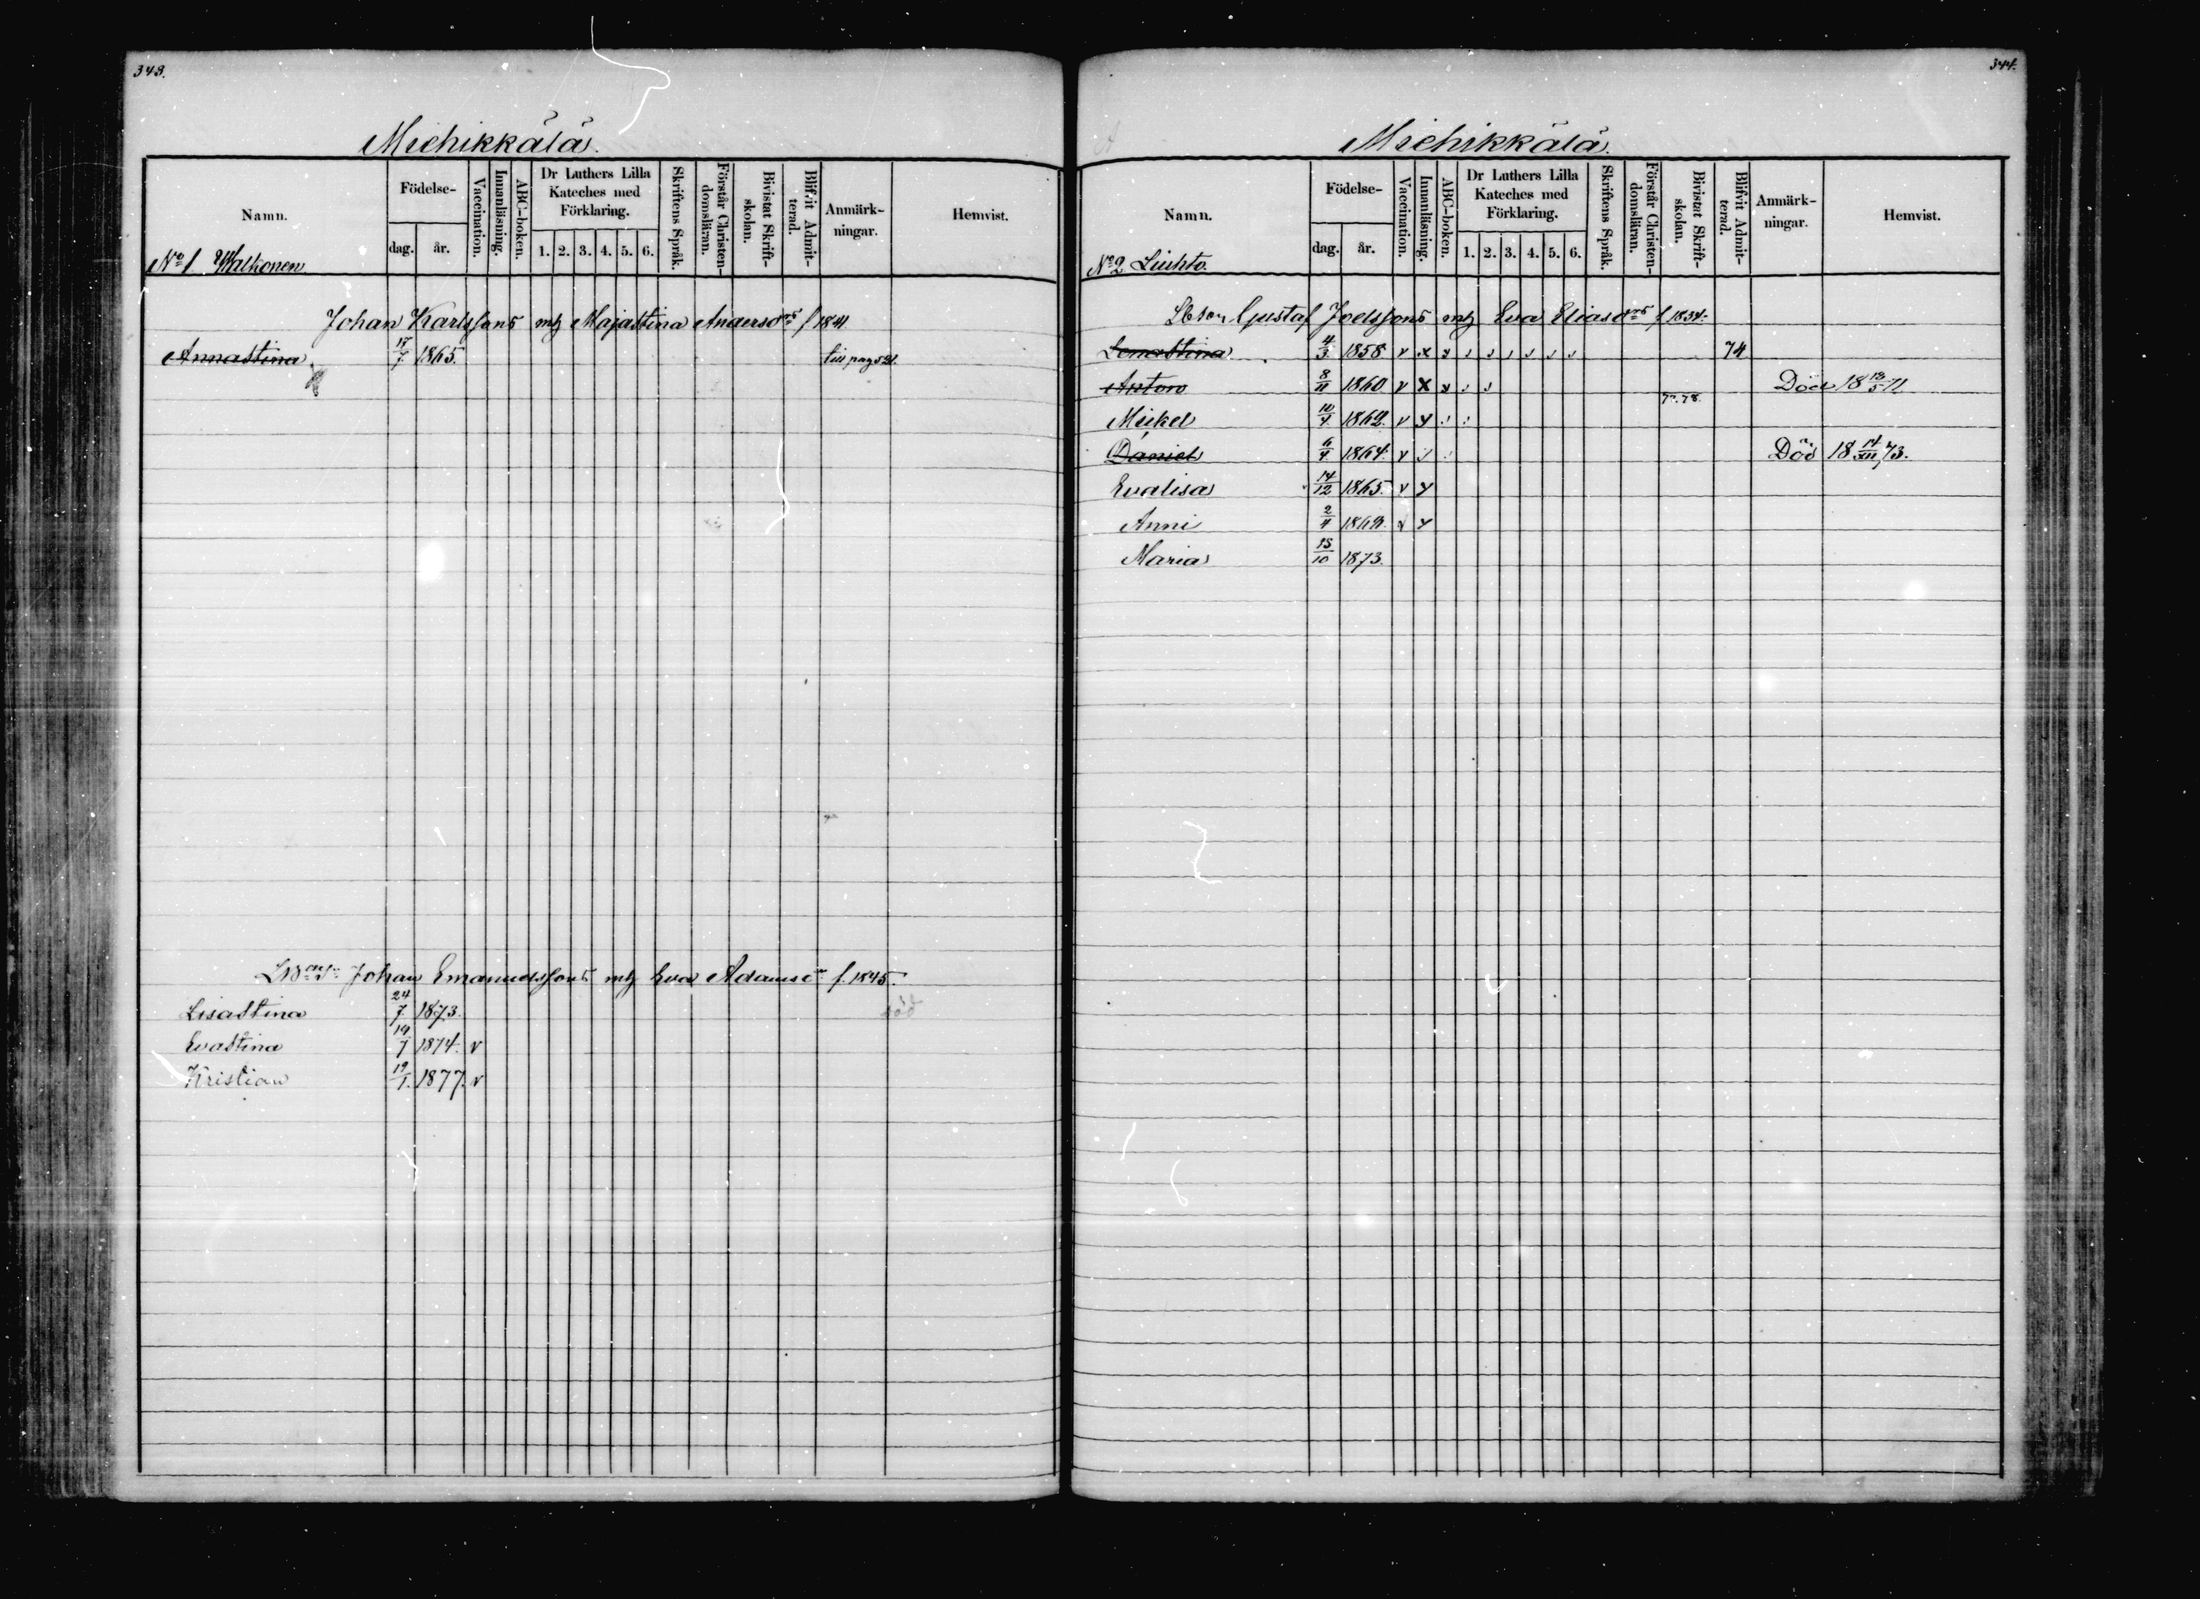 343.
Michikkälä.
Namn.
Födelse-
dag. år.
Vaccination.
Innanläsning.
ABC-boken.
Dr Luthers Lilla Kateches med Förklaring.
1. 2. 3. 4. 5. 6.
Skriftens Språk.
Förstår Christendomsläran.
Bivistat Skriftskolan.
Blifvit Admitterad.
Anmärkningar.
Hemvist.
No 1 Walkonen
Johan Karlssons mtz Majastina Andersdrs f 1841
Annastina 17/7 1865. till pag 521.
Johan Emanuelssons mtz Eva Adamsdr f. 1845.
Lisastina 24/7 1873. död
Evastina 19/7 1874. v
Kristian 19/1. 1877. v
344.
Michikkälä.
Namn.
Födelse-
dag. år.
Vaccination.
Innanläsning.
ABC-boken.
Dr Luthers Lilla Kateches med Förklaring.
1. 2. 3. 4. 5. 6.
Skriftens Språk.
Förstår Christendomsläran.
Bivistat Skriftskolan.
Blifvit Admitterad.
Anmärkningar.
Hemvist.
No 2 Liuhto.
Gustaf Joelssons mtz Eva Eliasdrs f 1834.
Lenastina 4/3 1858 v x 74
Anton 8/11 1860 v x Död 18 18/5 71
77. 78.
Mickel 10/4 1862. v
Daniel 6/4 1864. v Död 18 14/XII 73.
Evalisa 14/12 1865. v
Anni 2/4 1869. v
Maria 15/10 1873.